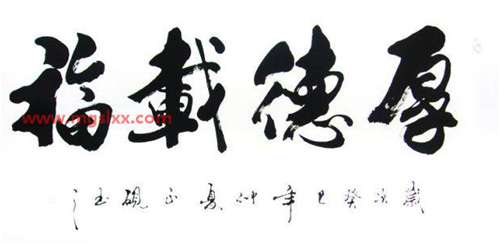 厚德載福
www.mgslxx.com
歲次癸巳年仲夏正硯玉